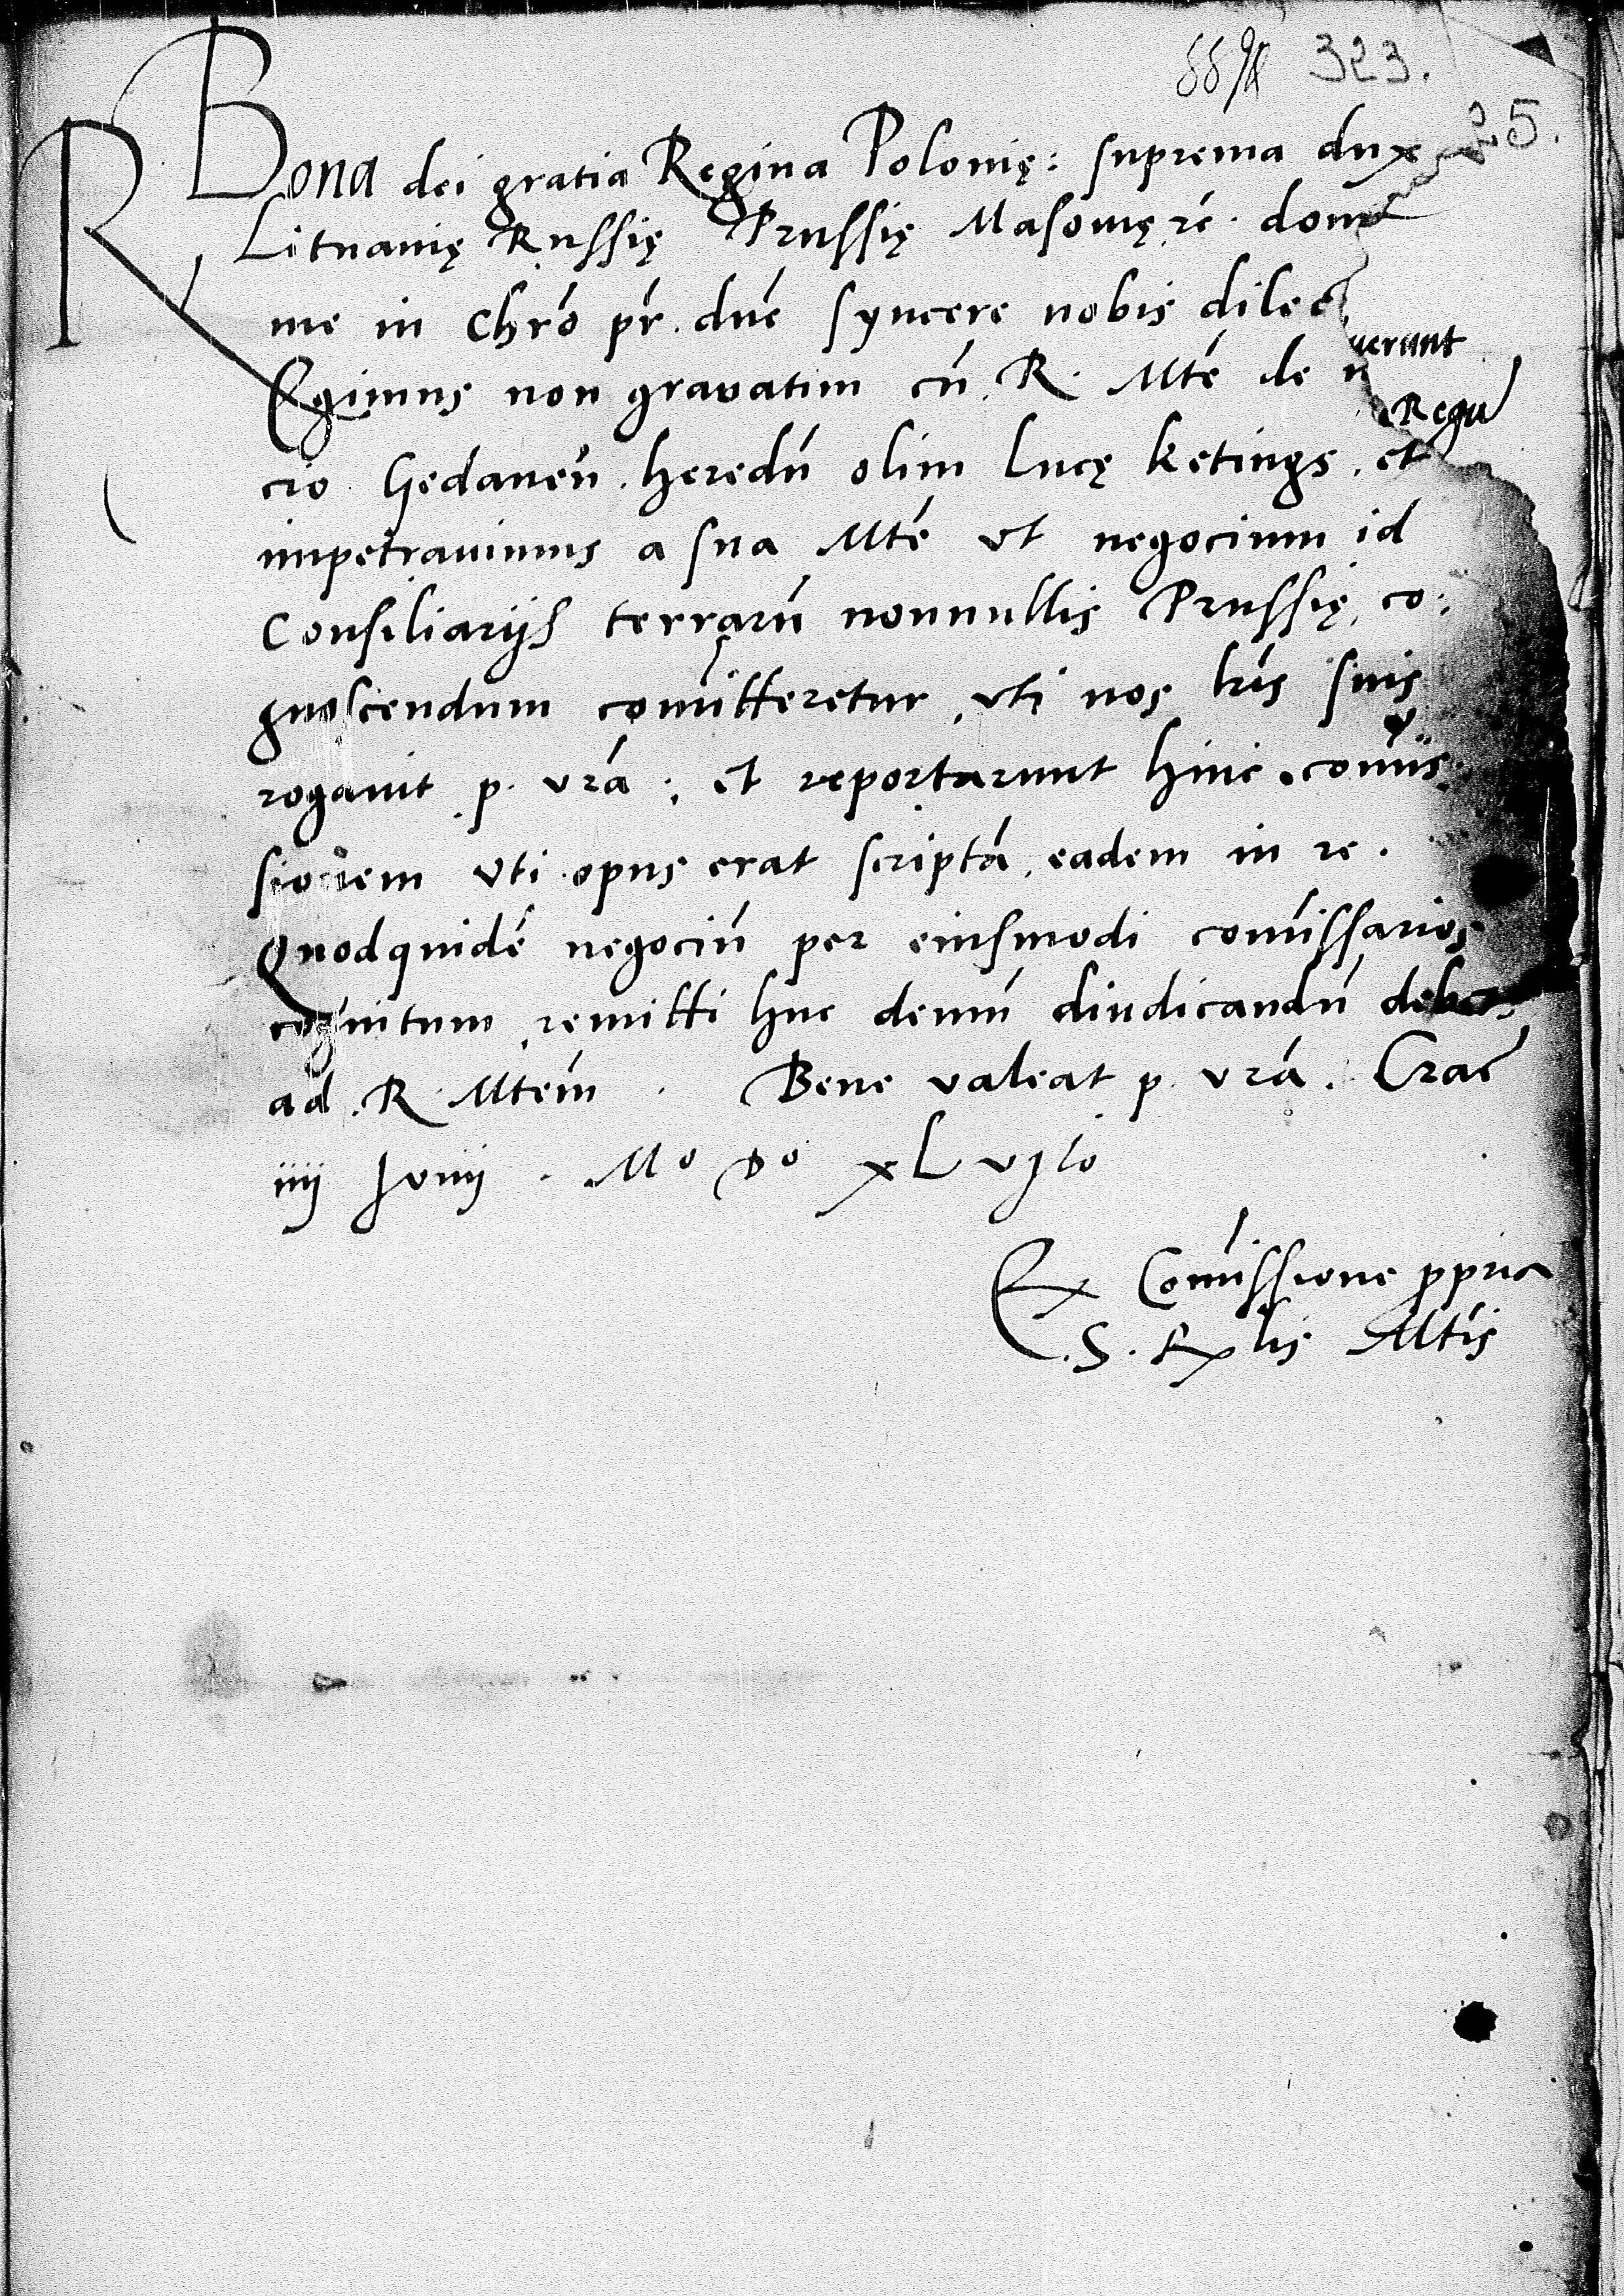 323.
25.
Bona dei gratia Regina Polonię: suprema dux
Lituanię Russię Prussię Masowię zc. domi
R
me in Chrō pr̄. dn̄e syncere nobis dilec
Egimus non gravatim cū R. Mtē de n
uerunt
Regu
cio Gedanen̄. heredū olim Lucę ketings. et
impetravimus a sua Mtē vt negocium id
Consiliarijs terrarū nonnullis Prussię, co:
gnoscendum com̄itteretur, vti nos lrīs suis
rogavit p. vrā: et reportarunt hinc com̄is:
sionem vti opus erat scriptā, eadem in re.
Quodquidē negociū per eiusmodi com̄issarios
cognitum remitti huc demū diudicandū debet
ad. R. Mtem̄. Bene valeat p. vrā. Crac̄
iiij Junij. Mo Do xL vjto
Ex Com̄issione ppria
S. R. lis Mtis